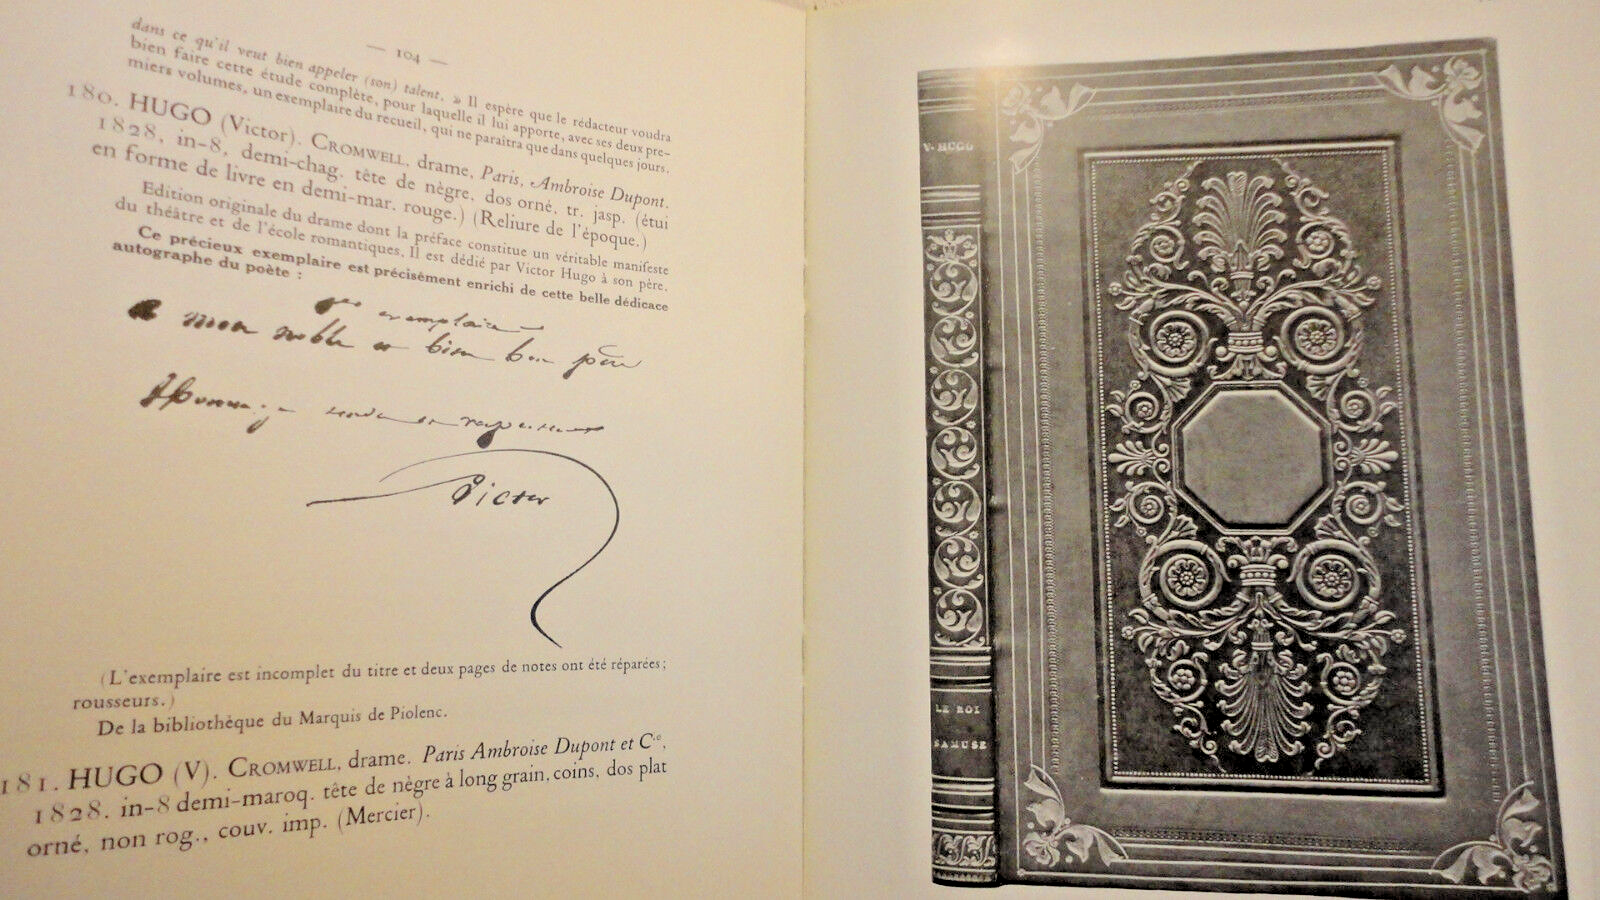 — 104 —
dans ce qu'il veut bien appeler (son) talent. » Il espère que le rédacteur voudra
bien faire cette étude complète, pour laquelle il lui apporte, avec ses deux pre-
miers volumes, un exemplaire du recueil, qui ne paraîtra que dans quelques jours.
180. HUGO (Victor). CROMWELL, drame, Paris, Ambroise Dupont.
1828, in-8, demi-chag. tête de nègre, dos orné, tr. jasp. (étui
en forme de livre en demi-mar. rouge.) (Reliure de l'époque.)
Edition originale du drame dont la préface constitue un véritable manifeste
du théâtre et de l'école romantiques. Il est dédié par Victor Hugo à son père.
Ce précieux exemplaire est précisément enrichi de cette belle dédicace
autographe du poète :
exemplaire
a mon noble et bien bon père
Hommage tendre et respectueux
Victor
(L'exemplaire est incomplet du titre et deux pages de notes ont été réparées ;
rousseurs.)
De la bibliothèque du Marquis de Piolenc.
181. HUGO (V). CROMWELL, drame. Paris Ambroise Dupont et Cie,
1828. in-8 demi-maroq. tête de nègre à long grain, coins, dos plat
orné, non rog., couv. imp. (Mercier).
V. HUGO
LE ROI
SAMUSE